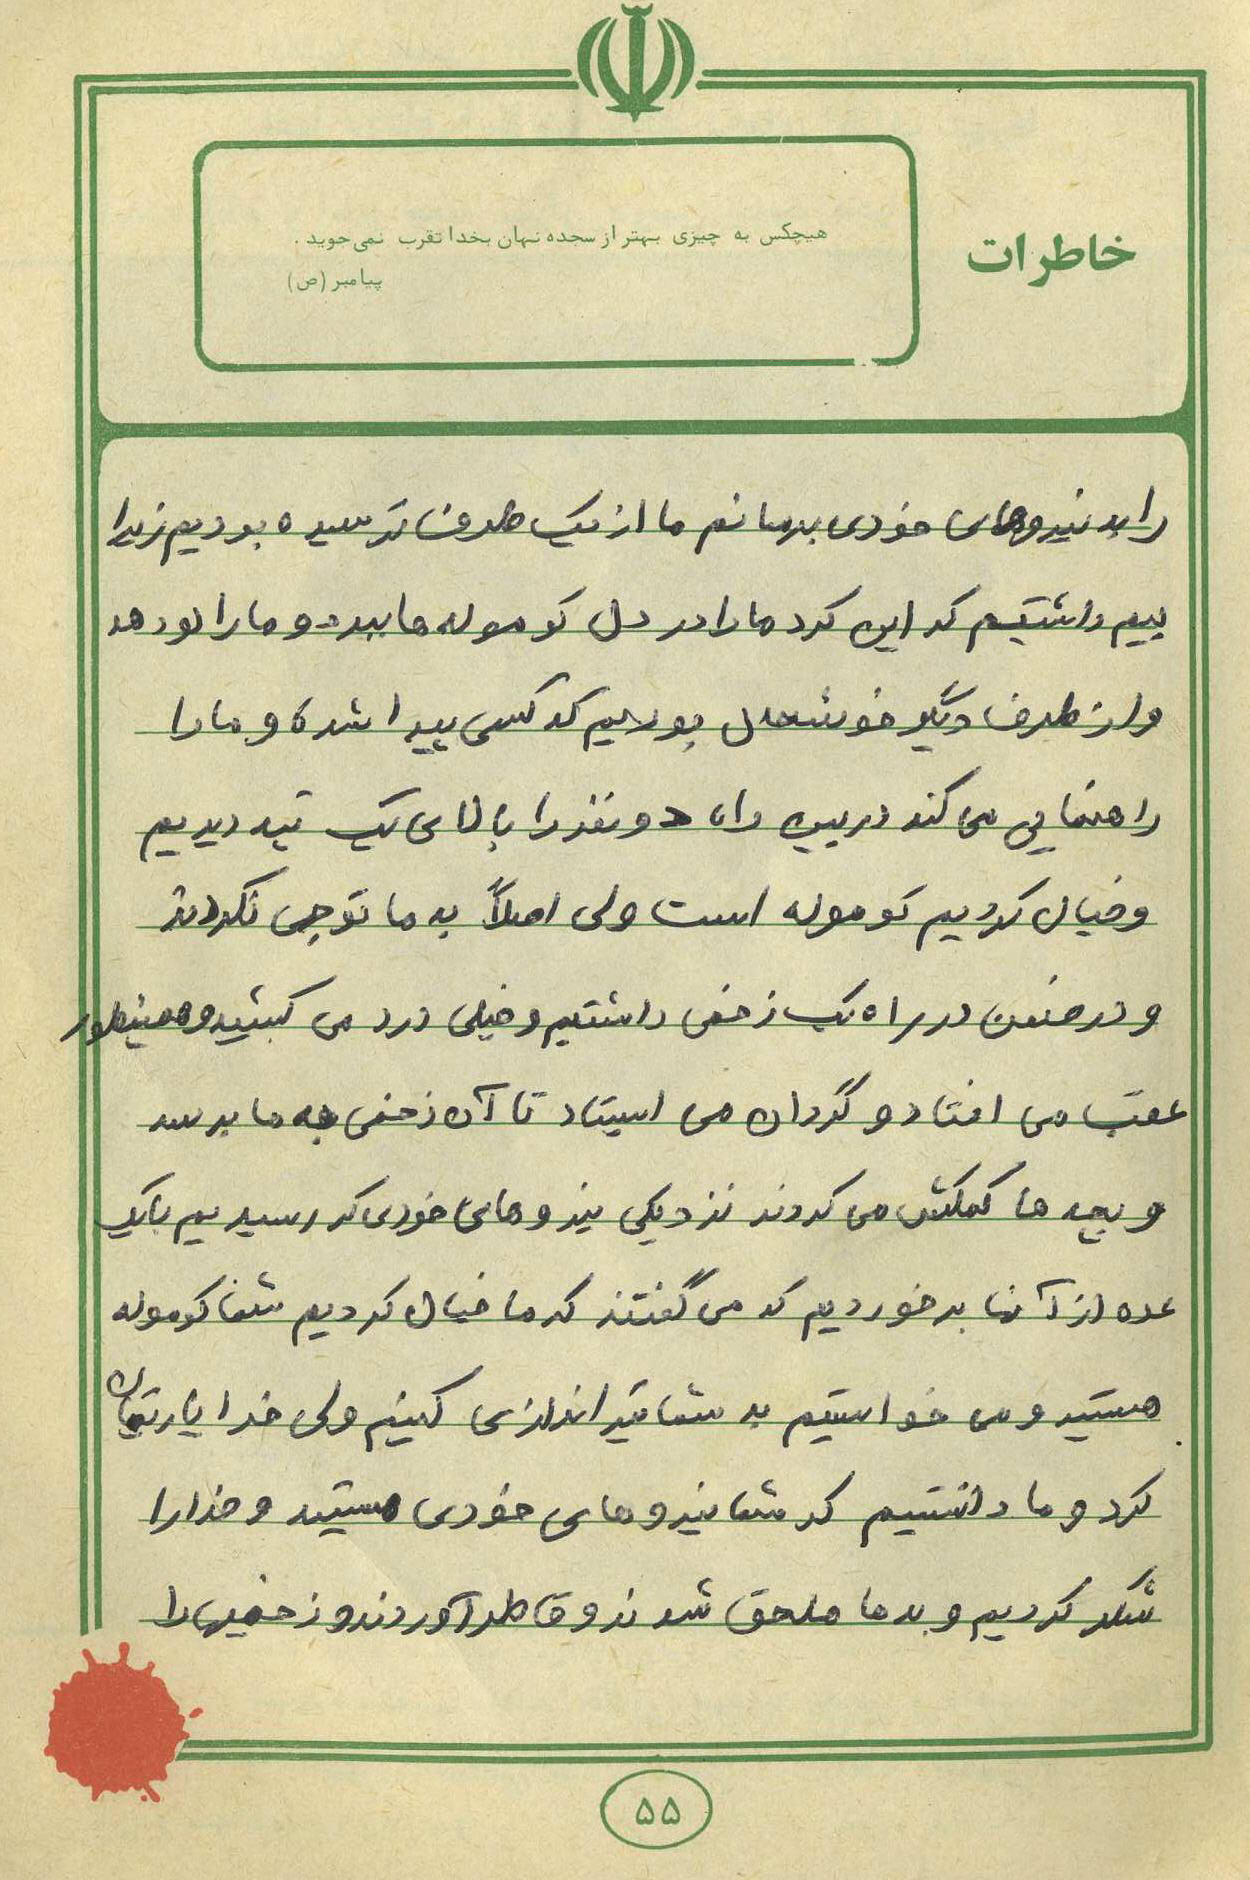 خاطرات
هیچکس به چیزی بهتر از سجده نهان بخدا تقرب نمی‌جوید.
پیامبر (ص)
را به نیروهای خودی برسانم ما از یک طرف ترسیده بودیم زیرا
بیم داشتیم که این کرد ما را در دل کوموله ها ببرد و ما را لو دهد
و از طرف دیگر خوشحال بودیم که کسی پیدا شده و ما را
راهنمایی می کند در بین راه دو نفر را بالای یک تپه دیدیم
و خیال کردیم کوموله است ولی اصلاً به ما توجی نکردند
و در ضمن در راه یک زخمی داشتیم و خیلی درد می کشید و همینطور
عقب می افتاد و گردان می ایستاد تا آن زخمی به ما برسد
و بچه ها کمکش می کردند نزدیکی نیروهای خودی که رسیدیم با یک
عده از آنها برخوردیم که می گفتند که ما خیال کردیم شما کوموله
هستید و می خواستیم به شما تیراندازی کنیم ولی خدا یاریتان
کرد و ما دانستیم که شما نیروهای خودی هستید و خدا را
شکر کردیم و به ما ملحق شدند و قاطر آوردند و زخمیها را
۵۵